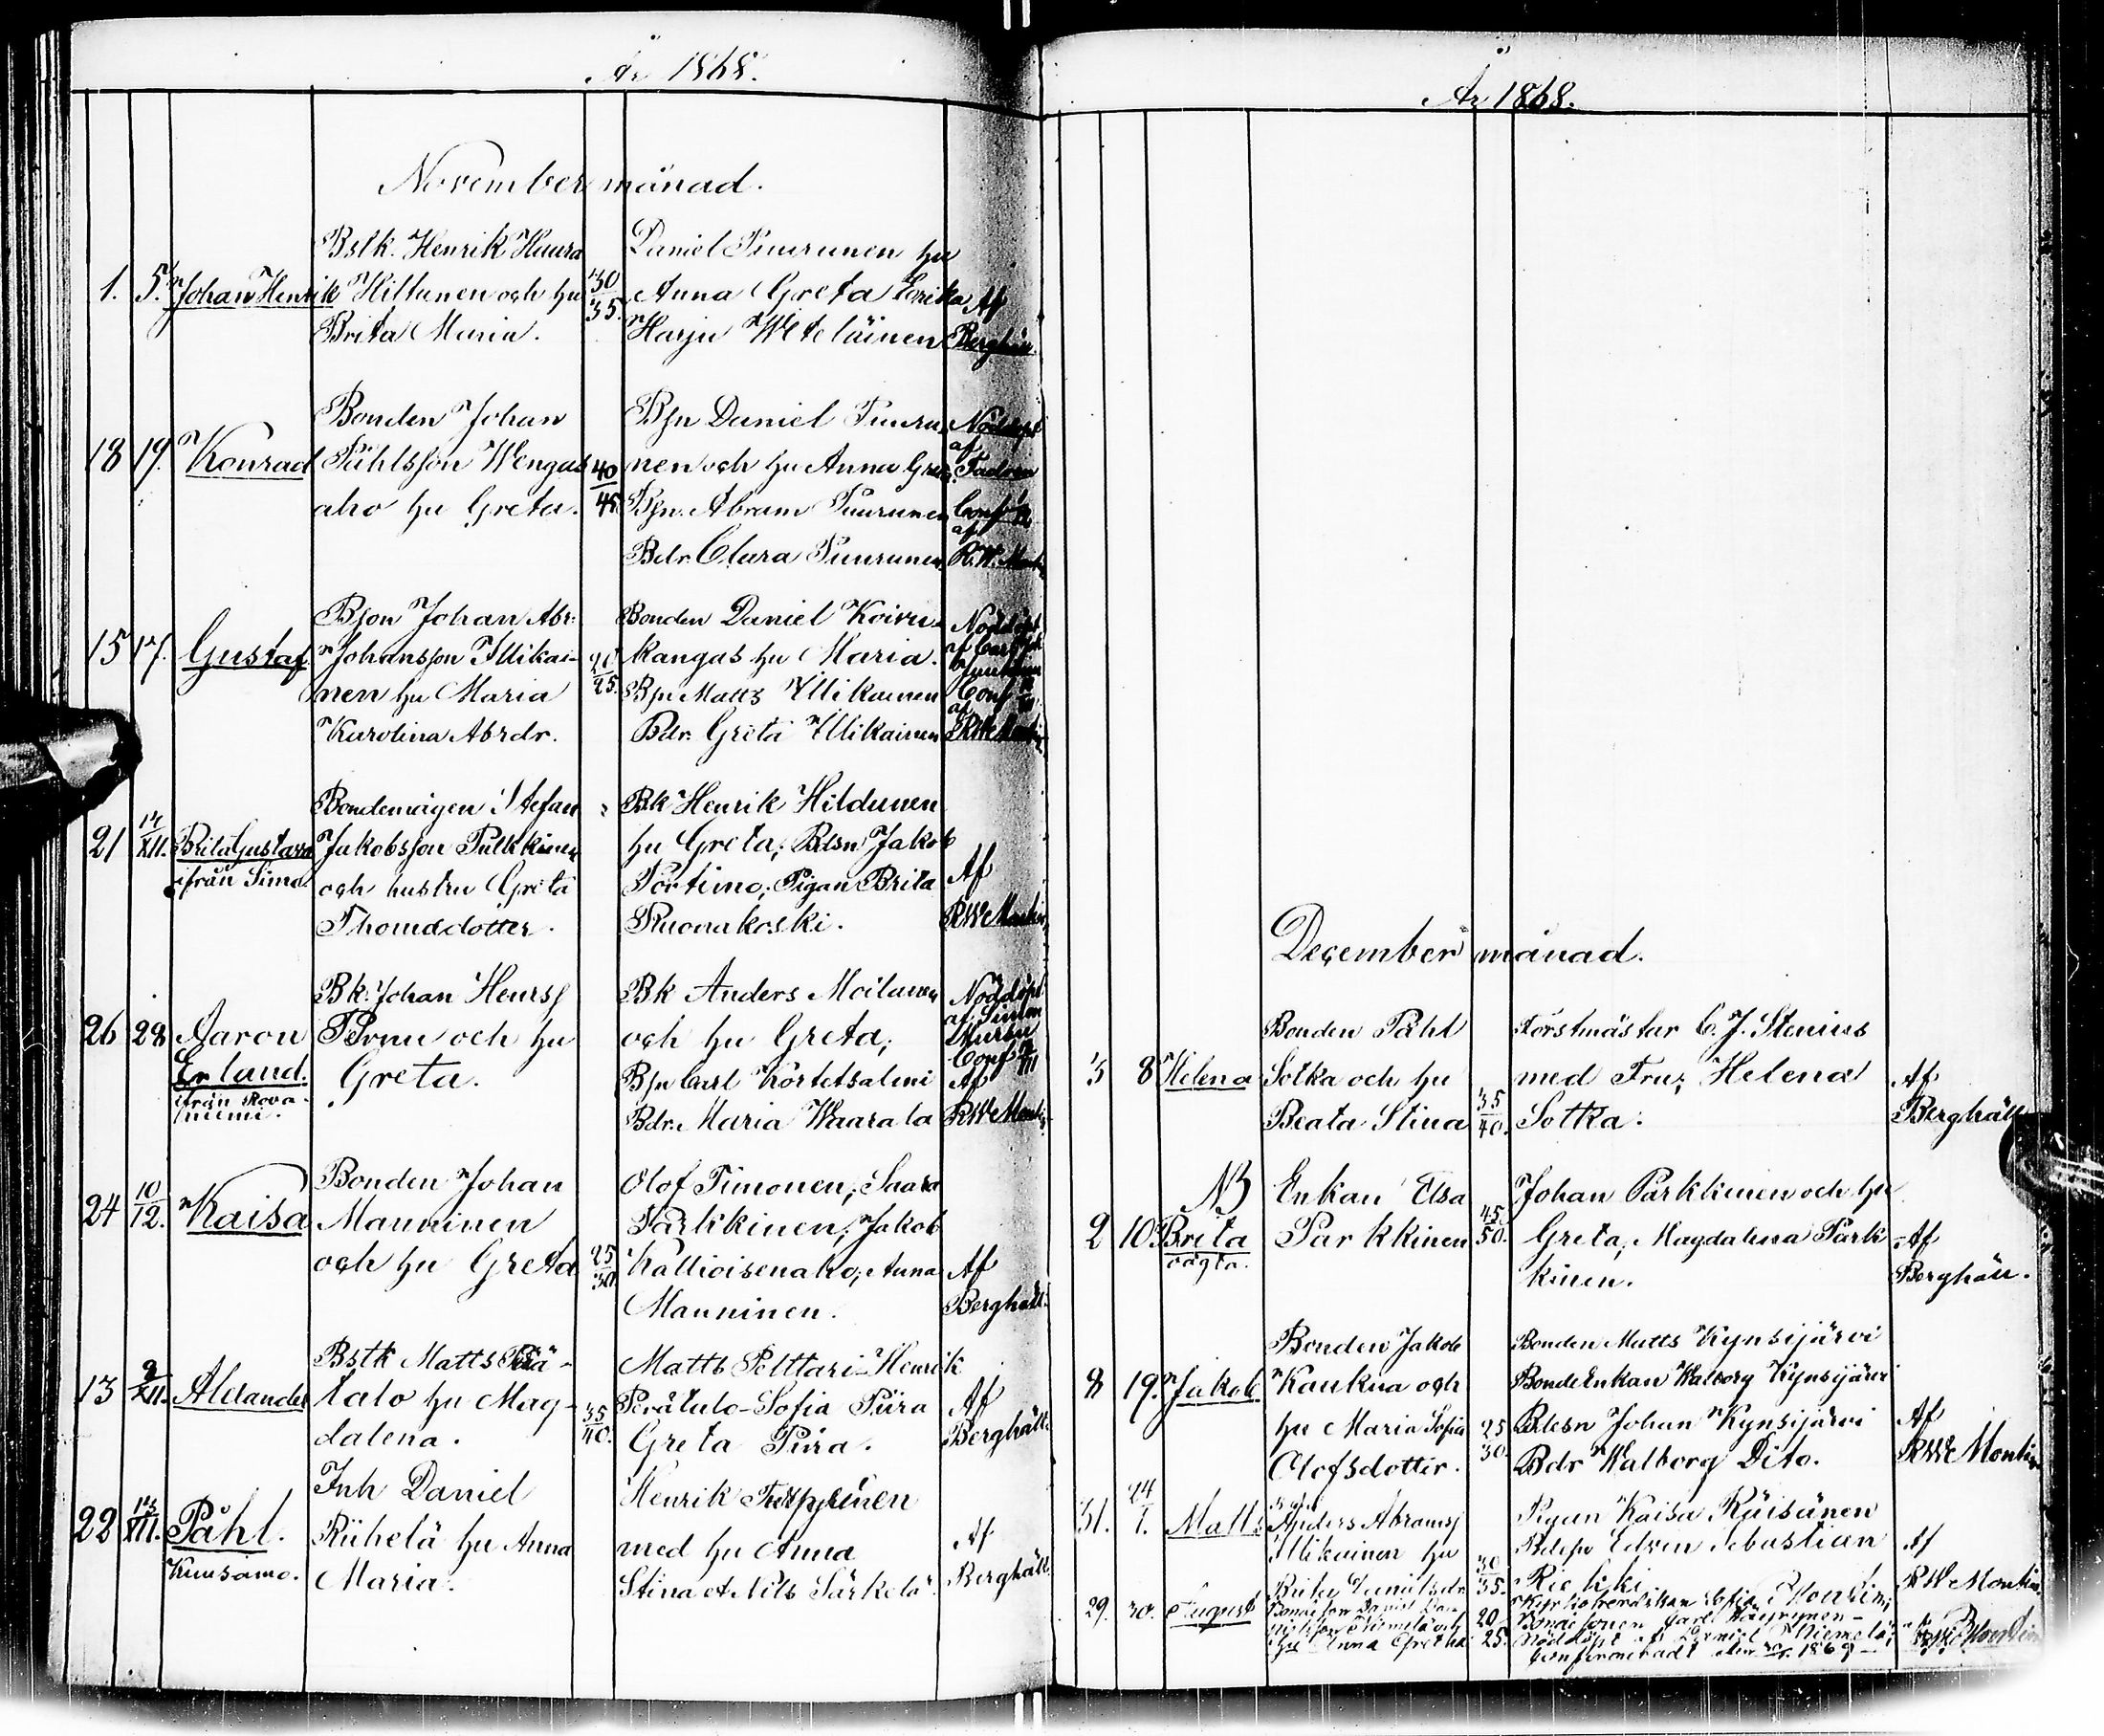 År 1868.
November månad.
Bstk. Henrik Huura
1. 5. Johan Henrik Hiltunen och hu 30/35.
Brita Maria.
Daniel Puurunen hu
Anna Greta Erika
Harju Weteläinen
Af
Berghäll.
Bonden Johan
18 19. Konrad Påhlsson Wengas
aho hu Greta. 40/45
Bsn Daniel Puuru-
nen och hu Anna Greta.
Bsn. Abram Puurunen
Bdr. Clara Puurunen
Nöddöpt
af
Conf
af
R.W. Montin
Bson Johan Abr.
15 17. Gustaf. Johansson Illikai-
nen hu Maria 20/25.
Karolina Abrdr.
Bonden Daniel Koivu-
kangas hu Maria.
Bsn Matts Illikainen
Bdr. Greta Illikainen
Nöddöpt
af Carl
Conf
af
RW Montin
Bondemågen Stefan
21 14/XII. Brita Gustava Jakobsson Pulkkinen
ifrån Simo. och hustru Greta
Thomsdotter.
Bk Henrik Hildunen
hu Greta; Bdsn Jakob
Portimo; Pigan Brita
Ruonakoski.
Af
RW Montin
Bk. Johan Henrss
26 28 Aaron Pernu och hu
Erland. Greta.
ifrån Rova-
niemi.
Bk Anders Moilanen
och hu Greta;
Bsn Carl Körtetsalmi
Bdr. Maria Waarala
Nöddöpt
af Simon
Conf
Af
RW Montin
Bonden Johan
24 10/12. Kaisa Manninen
och hu Greta 25/30.
Olof Timonen; Saara
Parkkinen; Jakob
Kallioisenaho; Anna
Manninen.
Af
Berghäll.
Bstk Matts Perä-
13 9/XII. Alexander talo hu Mag-
dalena. 35/40.
Matts Pelttari Henrik
Perätalo Sofia Piira
Greta Piira.
Af
Berghäll.
Inh Daniel
22 13/XII. Påhl. Riihelä hu Anna
Kuusamo. Maria.
Henrik
med hu Anna
Stina et Nils Särkelä
Af
Berghäll.
År 1868.
December månad.
Bonden Påhl
3 8 Helena Sotka och hu
Beata Stina 35/40.
Forstmästar C. J. Stenius
med Fru; Helena
Sotka.
Af
Berghäll
NB Enkan Elsa
2 10. Brita Parkkinen 45/50.
oägta.
Johan Parkkinen och hu
Greta; Magdalena Park-
kinen.
Af
Berghäll.
Bonden Jakob
8 19. Jakob. Kaukua och
hu Maria Sofia 25/30.
Olofsdotter.
Bonden Matts Kynsijärvi
Bondeenkan Walborg Kynsijärvi
Bdesn Johan Kynsijärvi
Bdr Walborg Dito.
Af
RW Montin
31. 24/1. Matts Anders Abramss
Illikainen hu 30/35.
Pigan Kaisa Räisänen
Bdesn Edvin Sebastian
Af
RW Montin.
29. 30. August Bondeson Daniel
Niemelä och 20
hu Anna Gretha 25.
Bondesonen Carl
Nöddöpt af Daniel Niemelä;
confirmeradt den 1869